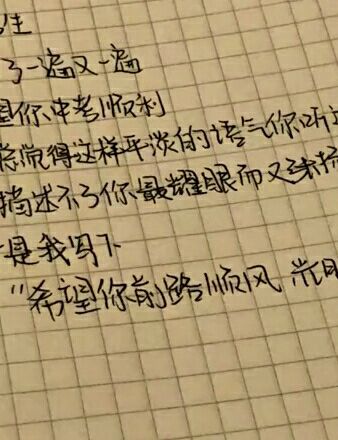 生
了一遍又一遍
望你中考顺利
你说得这样平淡的语气你听
描述不了你最耀眼而又
是我写下
“希望你前路顺风